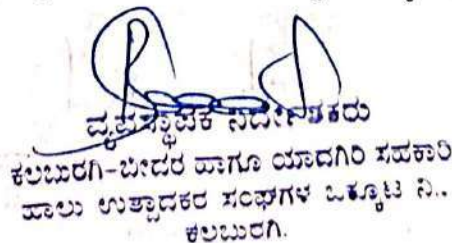 ವ್ಯವಸ್ಥಾಪಕ ನಿರ್ದೇಶಕರು
ಕಲಬುರಗಿ-ಬೀದರ ಹಾಗೂ ಯಾದಗಿರಿ ಸಹಕಾರಿ
ಹಾಲು ಉತ್ಪಾದಕರ ಸಂಘಗಳ ಒಕ್ಕೂಟ ನಿ..
ಕಲಬುರಗಿ.